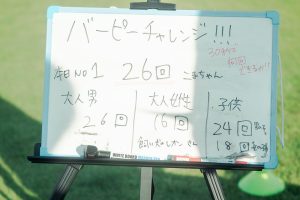 バーピーチャレンジ!!!
30秒で
何回
できるか!!
本日NO1 26回 こまちゃん
大人男 大人女性 子供
26回 16回 24回 男子
飼い犬レオンさん 18回 女の子